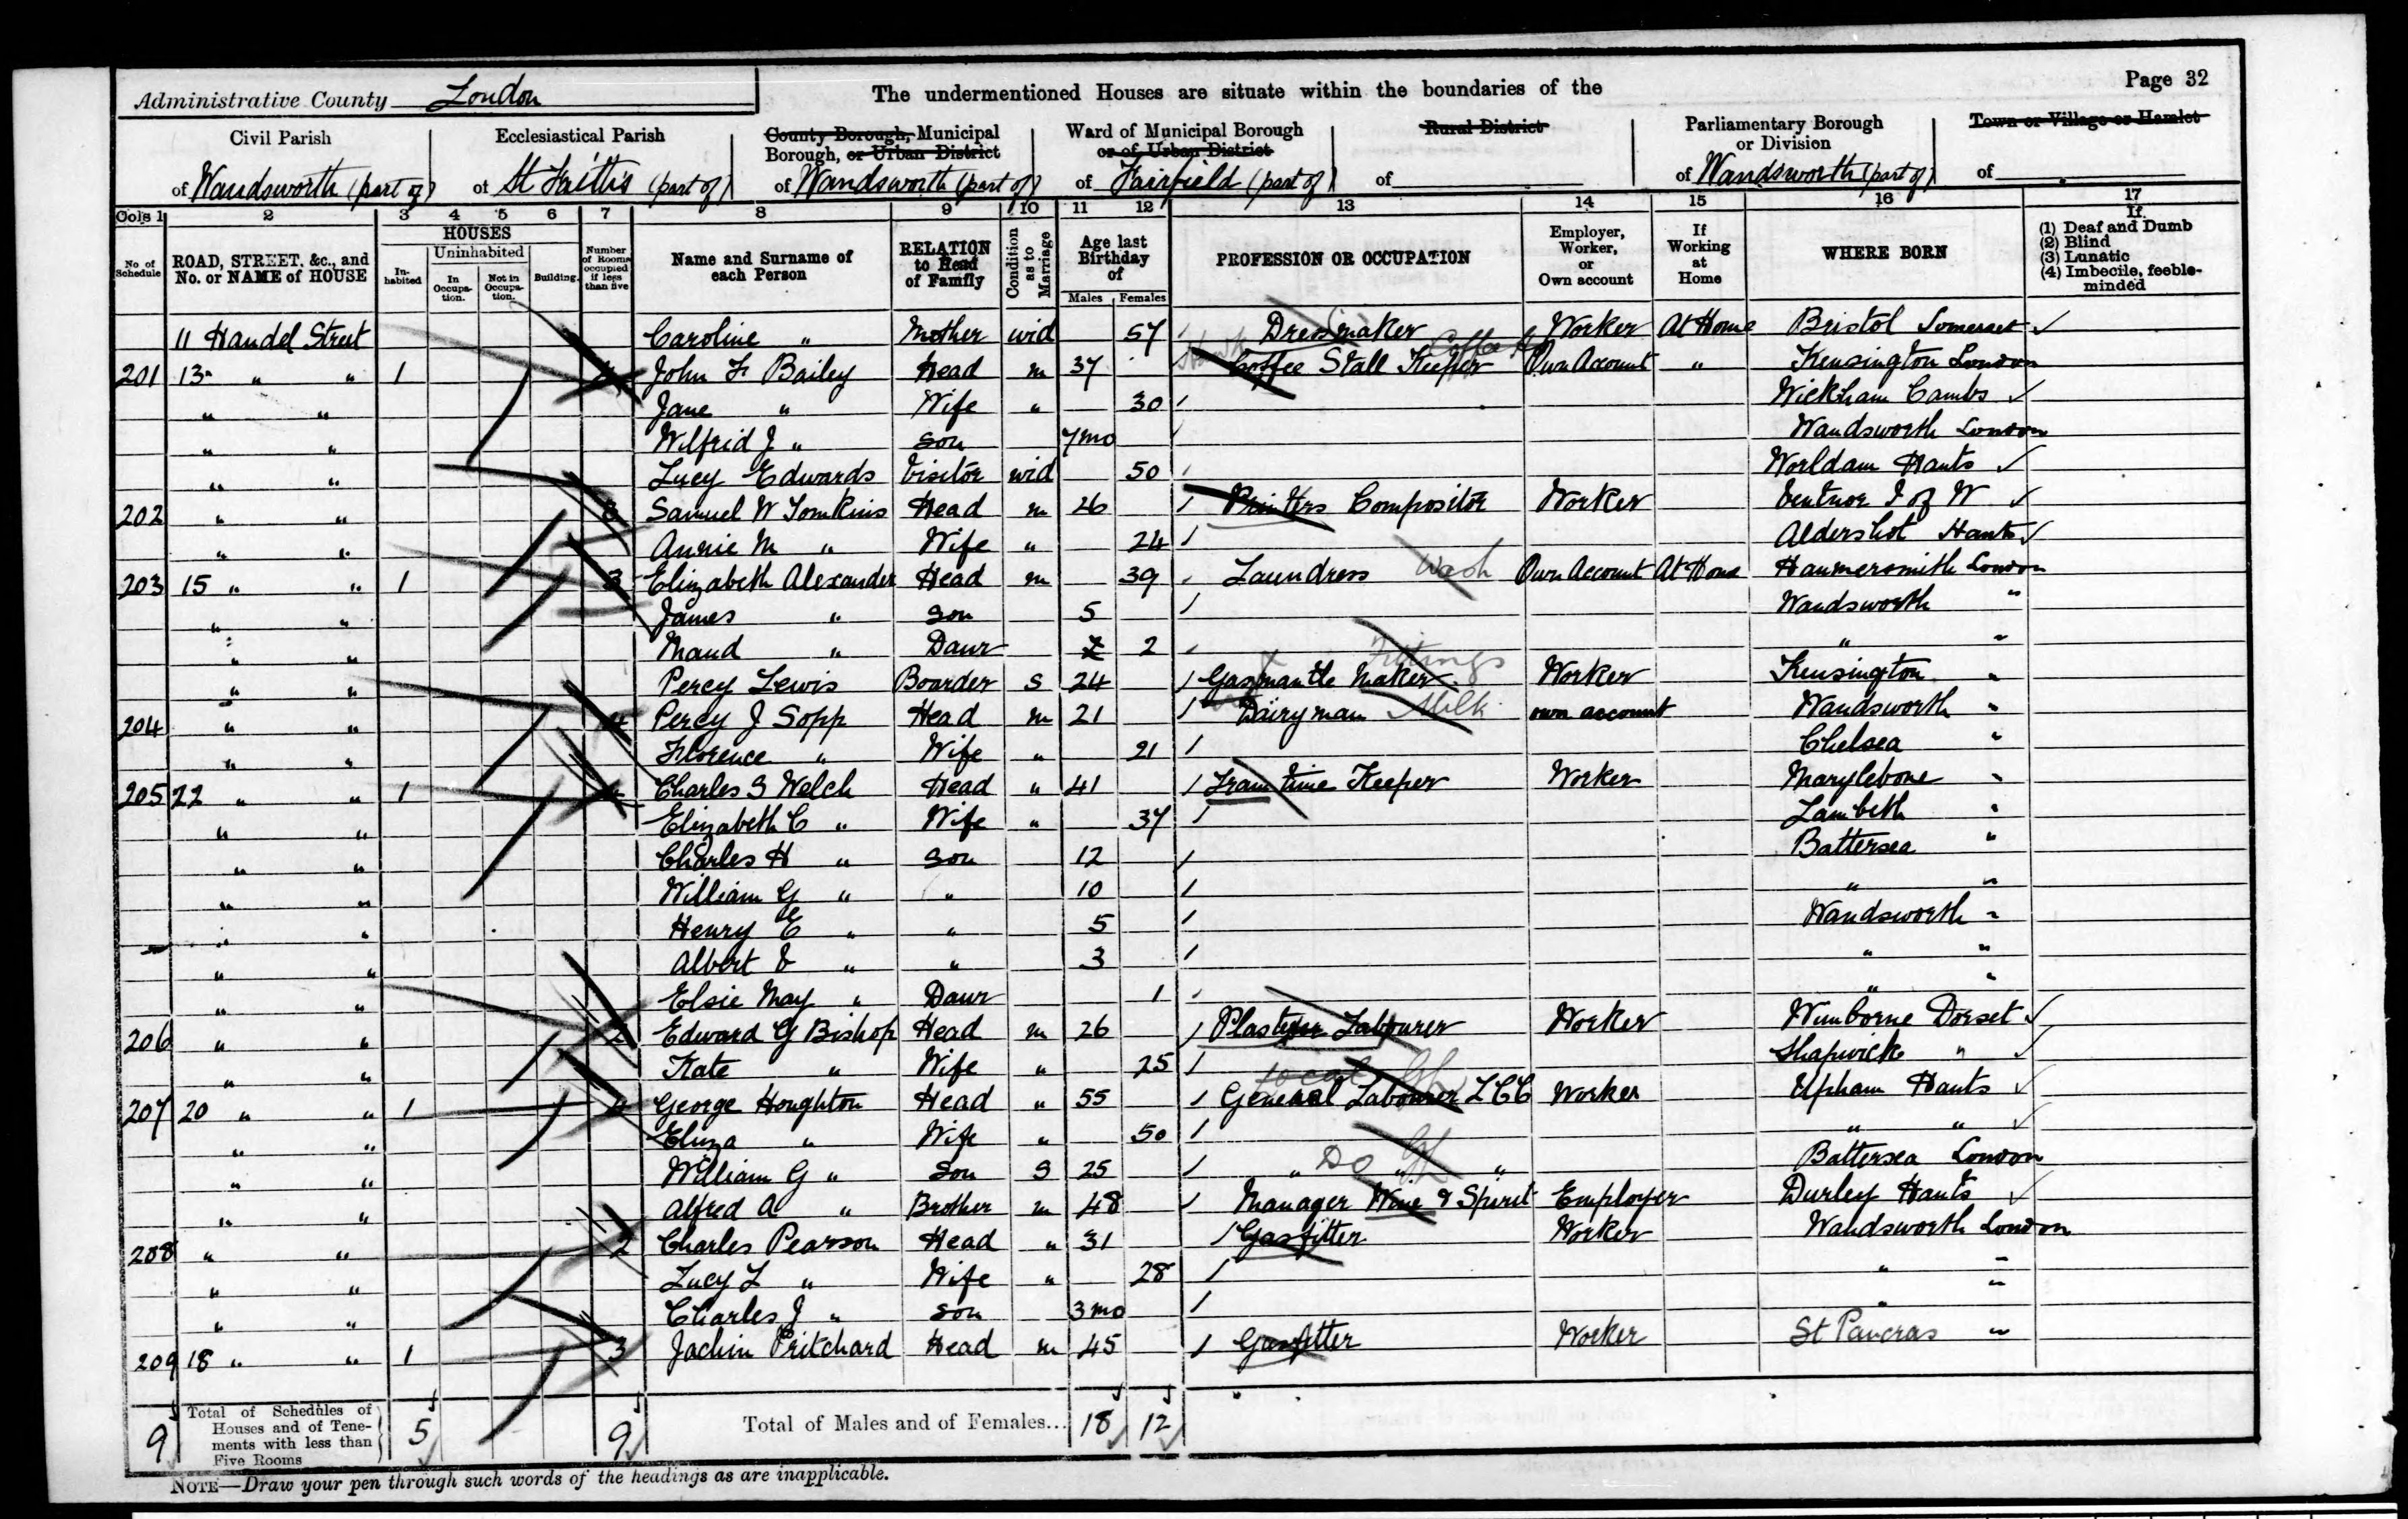 Administrative County London
The undermentioned Houses are situate within the boundaries of the
Page 32
Civil Parish
of Wandsworth (part of)
Ecclesiastical Parish
of St Faith's (part of)
County Borough, Municipal
Borough, or Urban District
of Wandsworth (part of)
Ward of Municipal Borough
or of Urban District
of Fairfield (part of)
Rural District
of
Parliamentary Borough
or Division
of Wandsworth (part of)
Town or Village or Hamlet
of
Cols 1 2 3 4 5 6 7 8 9 10 11 12 13 14 15 16 17
No. of Schedule
ROAD, STREET, &c., and No. or NAME of HOUSE
HOUSES
Inhabited
Uninhabited
In Occupation.
Not in Occupation.
Building.
Number of Rooms occupied if less than five
Name and Surname of each Person
RELATION to Head of Family
Condition as to Marriage
Age last Birthday of
Males Females
PROFESSION OR OCCUPATION
Employer, Worker, or Own account
If Working at Home
WHERE BORN
If
(1) Deaf and Dumb
(2) Blind
(3) Lunatic
(4) Imbecile, feeble-minded
11 Handel Street Caroline " Mother wid 57 Dressmaker Worker At Home Bristol Somerset
201 13 " " 1 4 John F Bailey Head m 37 Coffee Stall Keeper Own Account " Kensington London
" " Jane " Wife " 30 Wickham Cambs
" " Wilfrid J " Son 7mo Wandsworth London
" " Lucy Edwards Visitor wid 50 Worldam Hants
202 " " 3 Samuel W Tomkins Head m 26 Printers Compositor Worker Ventnor I of W
" " Annie M " Wife " 24 Aldershot Hants
203 15 " " 1 3 Elizabeth Alexander Head m 39 Laundress Wash Own Account At Home Hammersmith London
" " James " Son 5 Wandsworth "
" " Maud " Daur 2 " "
" " Percy Lewis Boarder S 24 Gas mantle Maker Fittings Worker Kensington "
204 " " 4 Percy J Sopp Head m 21 Dairyman Milk own account Wandsworth "
" " Florence " Wife " 21 Chelsea "
205 22 " " 1 4 Charles S Welch Head " 41 Tram time Keeper Worker Marylebone "
" " Elizabeth C " Wife " 37 Lambeth "
" " Charles H " Son 12 Battersea "
" " William G " " 10 " "
" " Henry E " " 5 Wandsworth "
" " Albert V " " 3 " "
" " Elsie May " Daur 1 " "
206 " " 2 Edward G Bishop Head m 26 Plasterer Labourer Worker Wimborne Dorset
" " Kate " Wife " 25 Shapwick "
207 20 " " 1 4 George Houghton Head " 55 General Labourer LCC Worker Upham Hants
" " Eliza " Wife " 50 " "
" " William G " Son S 25 " Do " " Battersea London
" " Alfred A " Brother m 48 Manager Wine & Spirit Employer Durley Hants
208 " " 2 Charles Pearson Head " 31 Gasfitter Worker Wandsworth London
" " Lucy L " Wife " 28 " "
" " Charles J " Son 3mo " "
209 18 " " 1 3 Jachin Pritchard Head m 45 Gasfitter Worker St Pancras "
9 Total of Schedules of Houses and of Tenements with less than Five Rooms 5 9 Total of Males and of Females... 18 12
NOTE—Draw your pen through such words of the headings as are inapplicable.